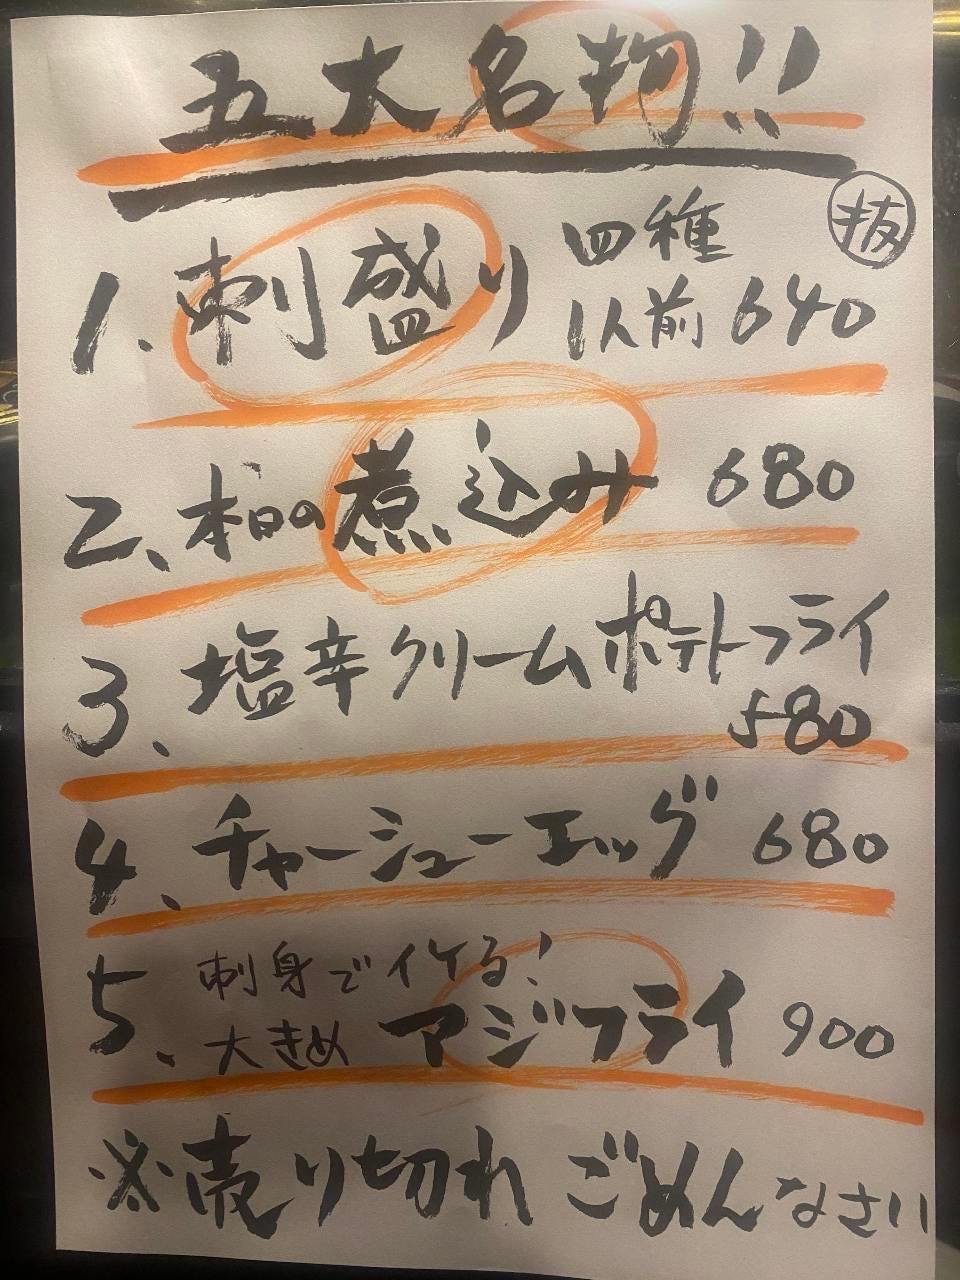 五大名物!!
抜
1、刺盛り 四種 1人前 640
2、本日の煮込み 680
3、塩辛クリームポテトフライ
580
4、チャーシューエッグ 680
5、刺身でイケる!
大きめ アジフライ 900
※売り切れ ごめんなさい